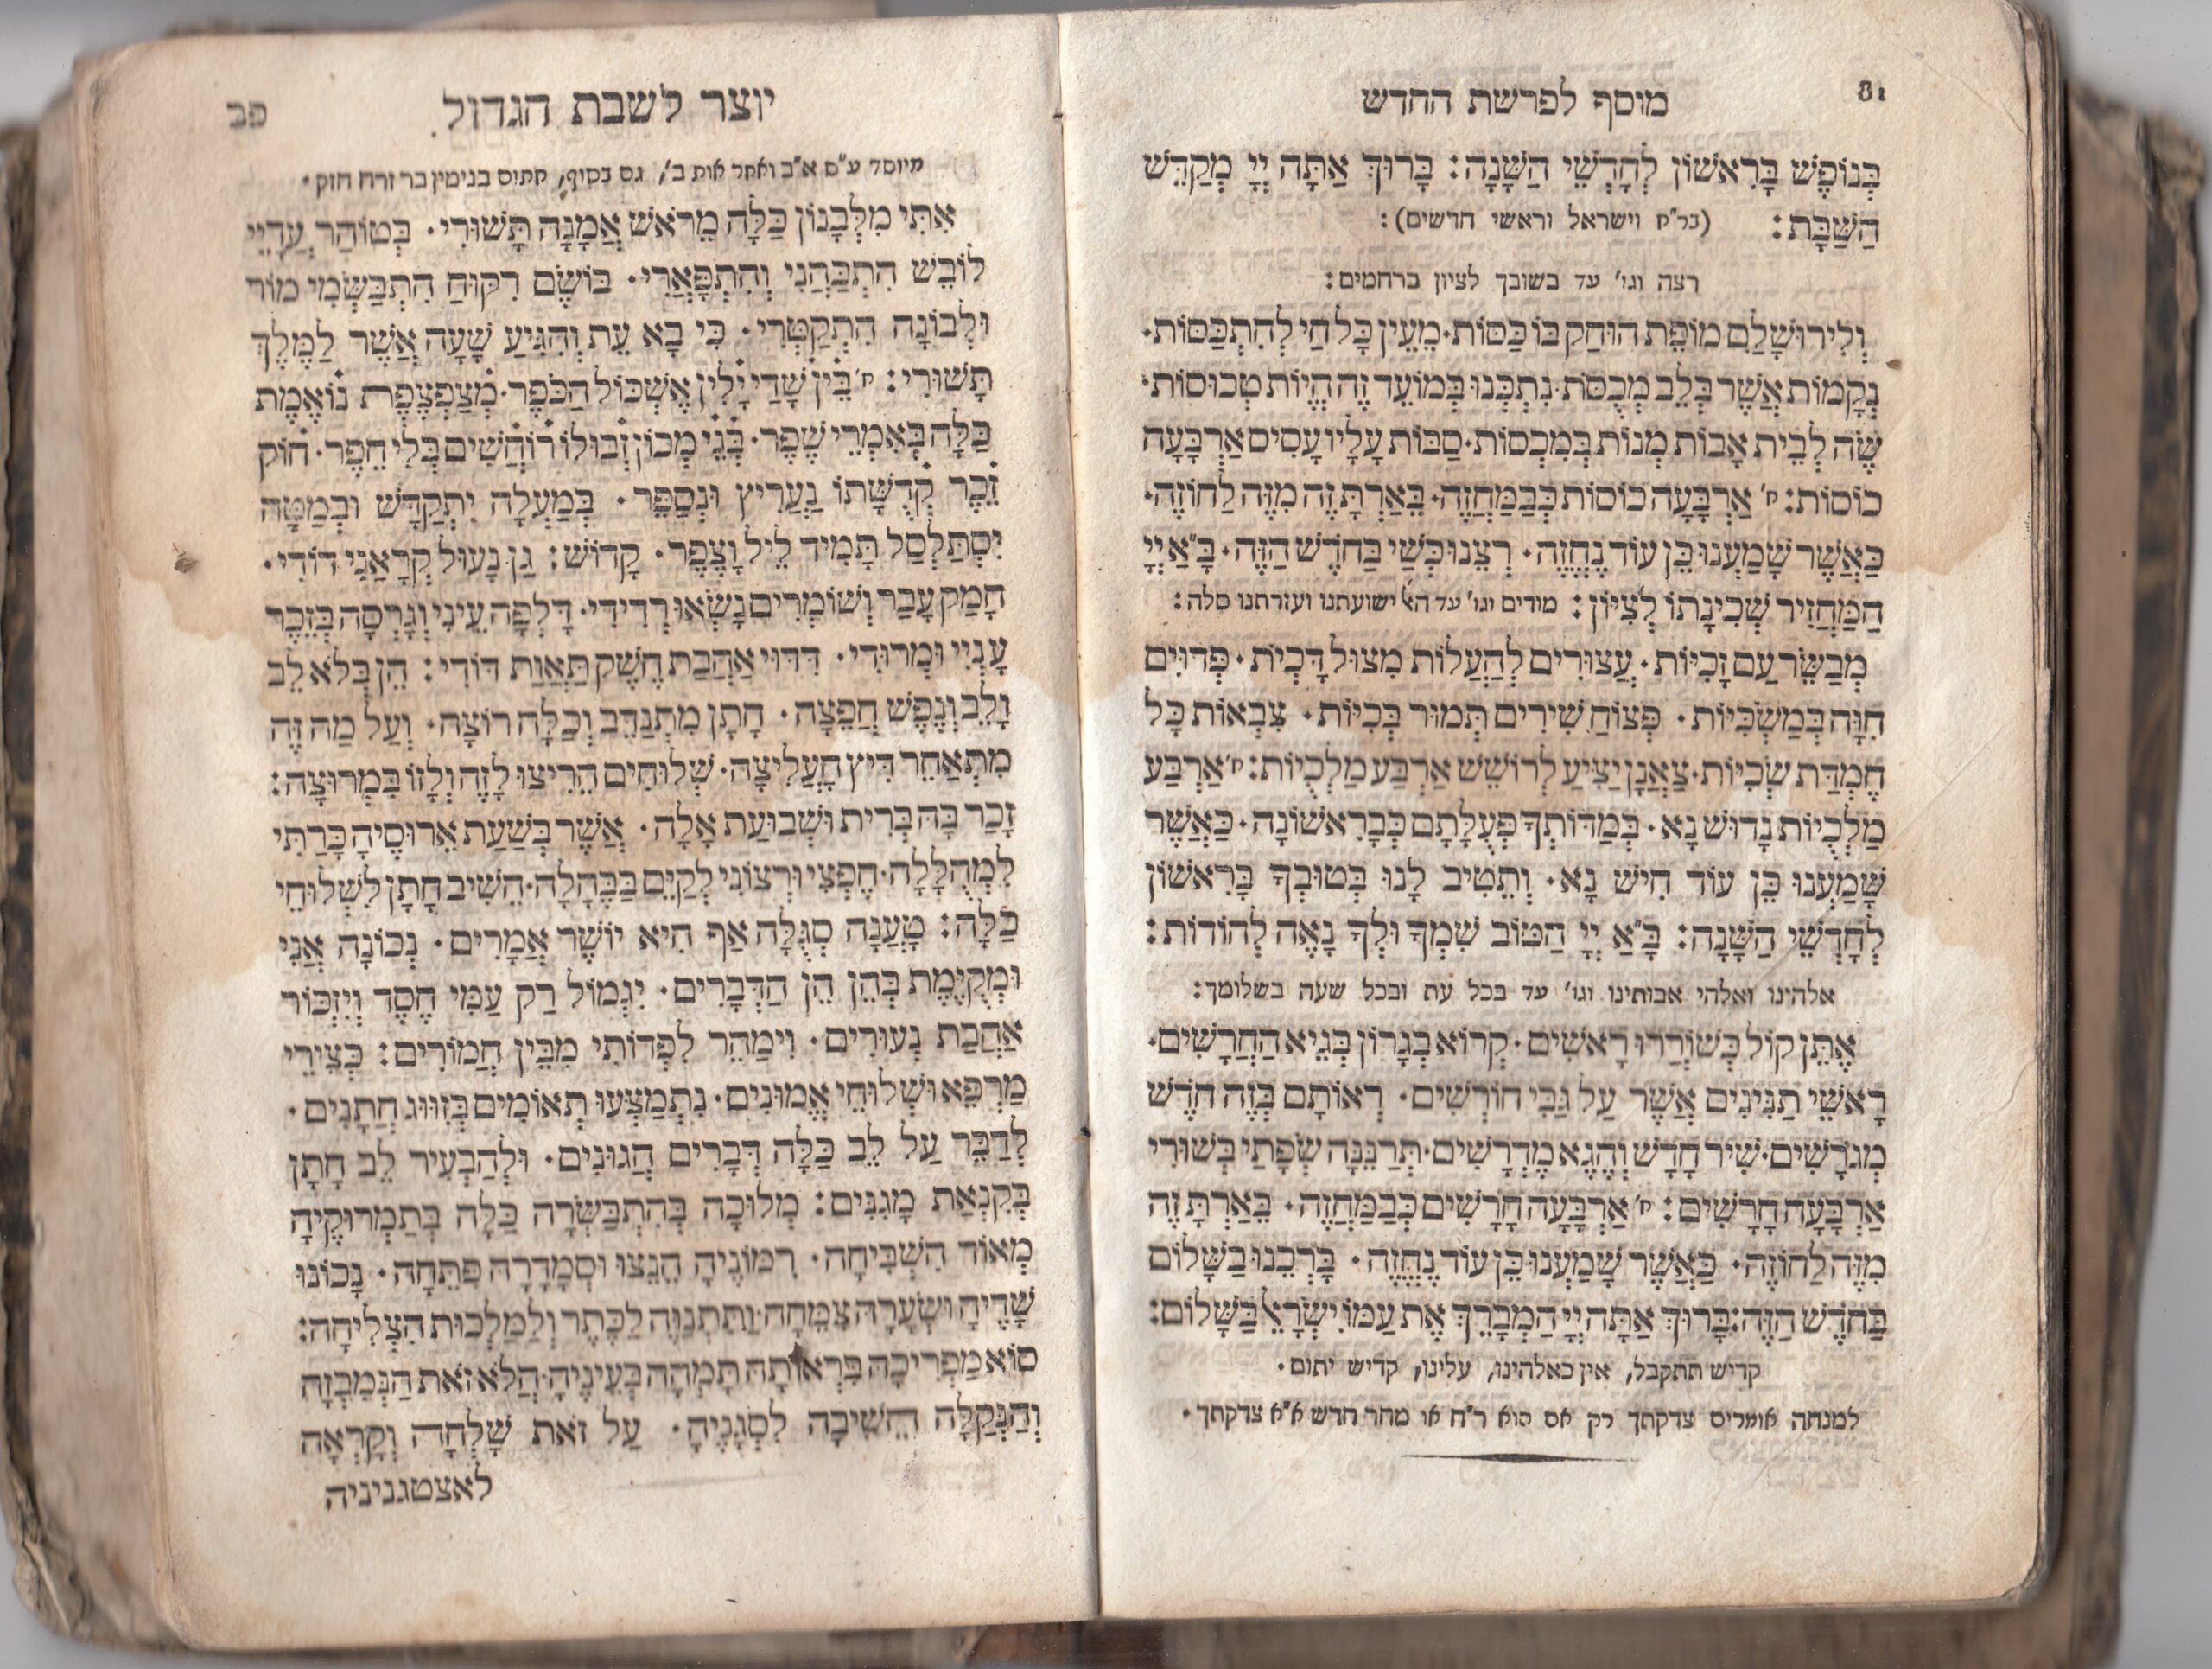 81
מוסף לפרשת החדש
בְּנוֹפֶשׁ בָּרִאשׁוֹן לְחָדְשֵׁי הַשָּׁנָה: בָּרוּךְ אַתָּה יְיָ מְקַדֵּשׁ
הַשַּׁבָּת: (בר״ח וישראל וראשי חדשים):
רצה וגו׳ עד בשובך לציון ברחמים:
וְלִירוּשָׁלַםִ מוֹפֵת הוּחַק בּוֹ כַּסּוֹת· מֵעֵין כָּל חַי לְהִתְכַּסּוֹת·
נְקָמוֹת אֲשֶׁר בְּלֵב מְכֻסֹּת· נִתְכְּנוּ בְּמוֹעֵד זֶה הֱיוֹת טְכוּסוֹת·
שֶׂה לְבֵית אָבוֹת מְנוֹת בְּמִכְסוֹת· סַבּוֹת עָלָיו עָסִים אַרְבָּעָה
כוֹסוֹת: ק׳ אַרְבָּעָה כוֹסוֹת כְּבַמַּחֲזֶה· בֵּאַרְתָּ זֶה מִזֶּה לַחוֹזֶה·
כַּאֲשֶׁר שָׁמַעְנוּ כֵּן עוֹד נֶחֱזֶה· רְצֵנוּ כְּשַׁי בַּחֹדֶשׁ הַזֶּה· בָּ״אַ יְיָ
הַמַּחֲזִיר שְׁכִינָתוֹ לְצִיּוֹן: מודים וגו׳ עד האל ישועתנו ועזרתנו סלה:
מְבַשֵּׂר עַם זָכִיּוֹת· עֲצוּרִים לְהַעֲלוֹת מִצּוּל דָּכְיֹת· פְּדוּיִם
חִוָּה בְּמַשְׂכִּיּוֹת· פְּצוֹחַ שִׁירִים תְּמוּר בְּכִיּוֹת· צִבְאוֹת כָּל
חֶמְדַּת שְׂכִיּוֹת· צַאֲנָן יַצִּיעַ לְרוֹשֵׁשׁ אַרְבַּע מַלְכֻיוֹת: ק׳ אַרְבַּע
מַלְכֻיוֹת נָדוּשׁ נָא· בְּמַדּוֹתְךָ פְּעֻלָּתָם כְּבָרִאשׁוֹנָה· כַּאֲשֶׁר
שָׁמַעְנוּ כֵּן עוֹד חִישׁ נָא· וְתֵטִיב לָנוּ בְּטוּבְךָ בָּרִאשׁוֹן
לְחָדְשֵׁי הַשָּׁנָה: בָּ״אַ יְיָ הַטּוֹב שִׁמְךָ וּלְךָ נָאֶה לְהוֹדוֹת:
אלהינו ואלהי אבותינו וגו׳ עד בכל עת ובכל שעה בשלומך:
אֶתֵּן קוֹל כְּשׁוֹרַרוּ רָאשִׁים· קְרוֹא בְגָרוֹן בְּגֵיא הַחֲרָשִׁים·
רָאשֵׁי תַנִּינִים אֲשֶׁר עַל גַּבִּי חוֹרְשִׁים· רְאוֹתָם בְּזֶה חֹדֶשׁ
מְגֹרָשִׁים· שִׁיר חָדָשׁ וְהֶגֶא מֶדְרָשִׁים· תְּרַנֵּנָּה שְׂפָתַי בְּשׁוּרִי
אַרְבָּעָה חָרָשִׁים: ק׳ אַרְבָּעָה חָרָשִׁים כְּבַמַּחֲזֶה· בֵּאַרְתָּ זֶה
מִזֶּה לַחוֹזֶה· כַּאֲשֶׁר שָׁמַעְנוּ כֵּן עוֹד נֶחֱזֶה· בָּרְכֵנוּ בַשָּׁלוֹם
בַּחֹדֶשׁ הַזֶּה: בָּרוּךְ אַתָּה יְיָ הַמְבָרֵךְ אֶת עַמּוֹ יִשְׂרָאֵל בַּשָּׁלוֹם:
קדיש תתקבל, אין כאלהינו, עלינו, קדיש יתום·
למנחה אומרים צדקתך רק אם הוא ר״ח או מחר חדש א״א צדקתך·
יוצר לשבת הגדול.
פב
מיוסד ע״פ א״ב ואחר אות ב׳, גם בסוף, חתום בנימין בר זרח חזק·
אִתִּי מִלְּבָנוֹן כַּלָּה מֵרֹאשׁ אֲמָנָה תָּשׁוּרִי· בְּטוֹהַר עֲדָיֵי
לוֹבֶשׁ הִתְכַּהֲנִי וְהִתְפָּאֲרִי· בּוֹשֶׂם רִקּוּחַ הִתְבַּשְּׂמִי מוֹר
וּלְבוֹנָה הִתְקַטְּרִי· כִּי בָא עֵת וְהִגִּיעַ שָׁעָה אֲשֶׁר לַמֶּלֶךְ
תָּשׁוּרִי: ק׳ בֵּין שָׁדַי יָלִין אֶשְׁכּוֹל הַכֹּפֶר· מְצַפְצֶפֶת נוֹאֶמֶת
כַּלָּה בְּאִמְרֵי שֶׁפֶר· בְּגֵי מְכוֹן זְבוּלוֹ רוֹחֲשִׁים בְּלִי חֵפֶר· חוֹק
זֵכֶר קְדֻשָּׁתוֹ נַעֲרִיץ וּנְסַפֵּר· בְּמַעְלָה יִתְקַדָּשׁ וּבְמַטָּה
יִסְתַּלְסַל תָּמִיד לֵיל וָצֶפֶר· קָדוֹשׁ: גַּן נָעוּל קְרָאַנִי דּוֹדִי·
חָמַק עָבַר וְשׁוֹמְרִים נָשְׂאוּ רְדִידִי· דָּלְפָה עֵינִי וְגָרְסָה בְּזֵכֶר
עָנְיִי וּמְרוּדִי· דִּדּוּי אַהֲבַת חֶשֶׁק תַּאֲוַת דּוֹדִי: הֵן בְּלֹא לֵב
וָלֵב וְנֶפֶשׁ חֲפֵצָה· חָתָן מִתְנַדֵּב וְכַלָּה רוֹצָה· וְעַל מַה זֶּה
מִתְאַחֵר דִּיץ חֲעֲלִיצָה· שְׁלוּחִים הֵרִיצוּ לָזֶה וְלָזוֹ בִּמְרוּצָה:
זָכַר בָּהּ בְּרִית וּשְׁבוּעַת אָלָה· אֲשֶׁר בְּשַׁעַת אֵרוּסֶיהָ כָּרַתִּי
לִמְהֻלָּלָה· חֶפְצִי וּרְצוֹנִי לְקַיֵּם בַּבֶּהָלָה· הֵשִׁיב חָתָן לִשְׁלוּחֵי
כַלָּה: טָעֲנָה סְגֻלָּה אַף הִיא יוֹשֶׁר אֲמָרִים· נְכוֹנָה אֲנִי
וּמְקֻיֶּמֶת בְּהֵן הֵן הַדְּבָרִים· יִגְמוֹל רַק עַמִּי חֶסֶד וְיִזְכּוֹר
אַהֲבַת נְעוּרִים· וִימַהֵר לִפְדוֹתִי מִבֵּין חֲמוֹרִים: כְּצִירֵי
מַרְפֵּא וּשְׁלוּחֵי אֱמוּנִים· נִתְמַצְּעוּ תְאוֹמִים בְּזִוּוּג חֲתָנִים·
לְדַבֵּר עַל לֵב כַּלָּה דְּבָרִים הֲגוּנִים· וּלְהַבְעִיר לֵב חָתָן
בְּקִנְאַת מָגִנִּים: מְלוּכָה בְּהִתְבַּשְּׂרָה כַּלָּה בְּתַמְרוּקֶיהָ
מְאוֹד הִשְׁבִּיחָה· רִמּוֹנֶיהָ הֵנֵצוּ וּסְמָדָרָהּ פִּתֵּחָה· נָכוֹנוּ
שָׁדֶיהָ וּשְׂעָרָהּ צִמֵּחָה· וַתִּתְנַוֶּה לַכֶּתֶר וְלַמַּלְכוּת הִצְלִיחָה:
סוֹא מַפְרִיכָהּ בִּרְאוֹתָהּ תָּמְהָה בְּעֵינֶיהָ· הֲלֹא זֹאת הַנְּמִבְזָה
וְהַנְּקַלָּה הֵשִׁיבָה לִסְגָנֶיהָ· עַל זֹאת שָׁלְחָה וְקָרְאָה
לאצטגניניה